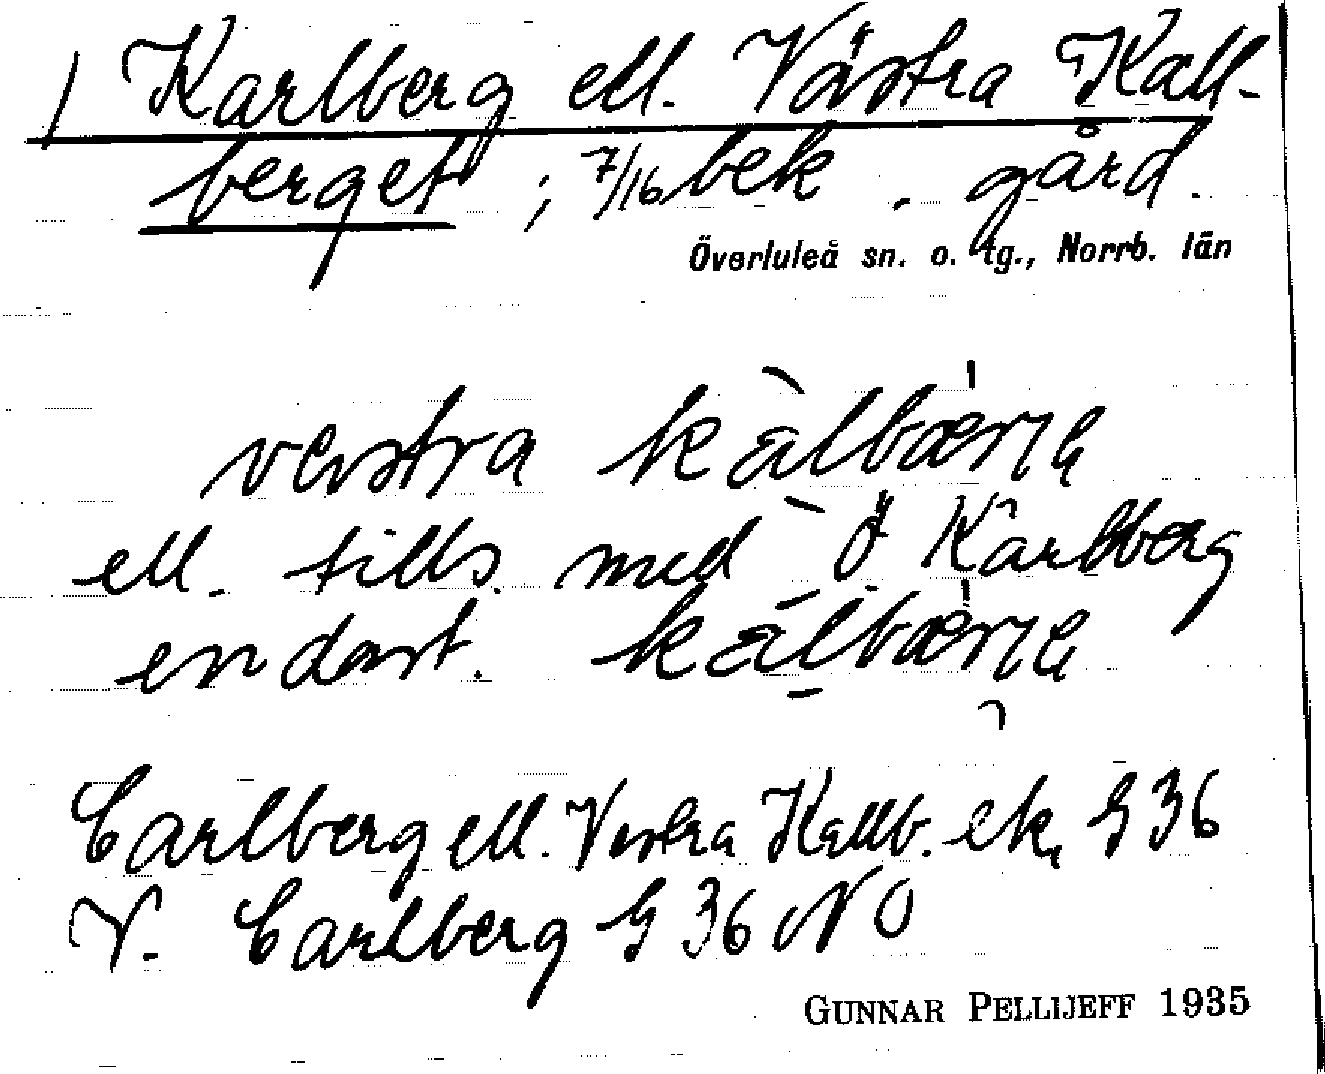 1 Karlberg ell. Västra Kall-
berget ; 7/16 bek . gård.
Överluleå sn. o. tg., Norrb. län
vestra kàlbærje
ell. tills. med Ö Karlberg
endast. kalbærje
Carlberg ell. Vestra Kallb. ek, G 36
V. Carlberg G 36 NO
GUNNAR PELLIJEFF 1935